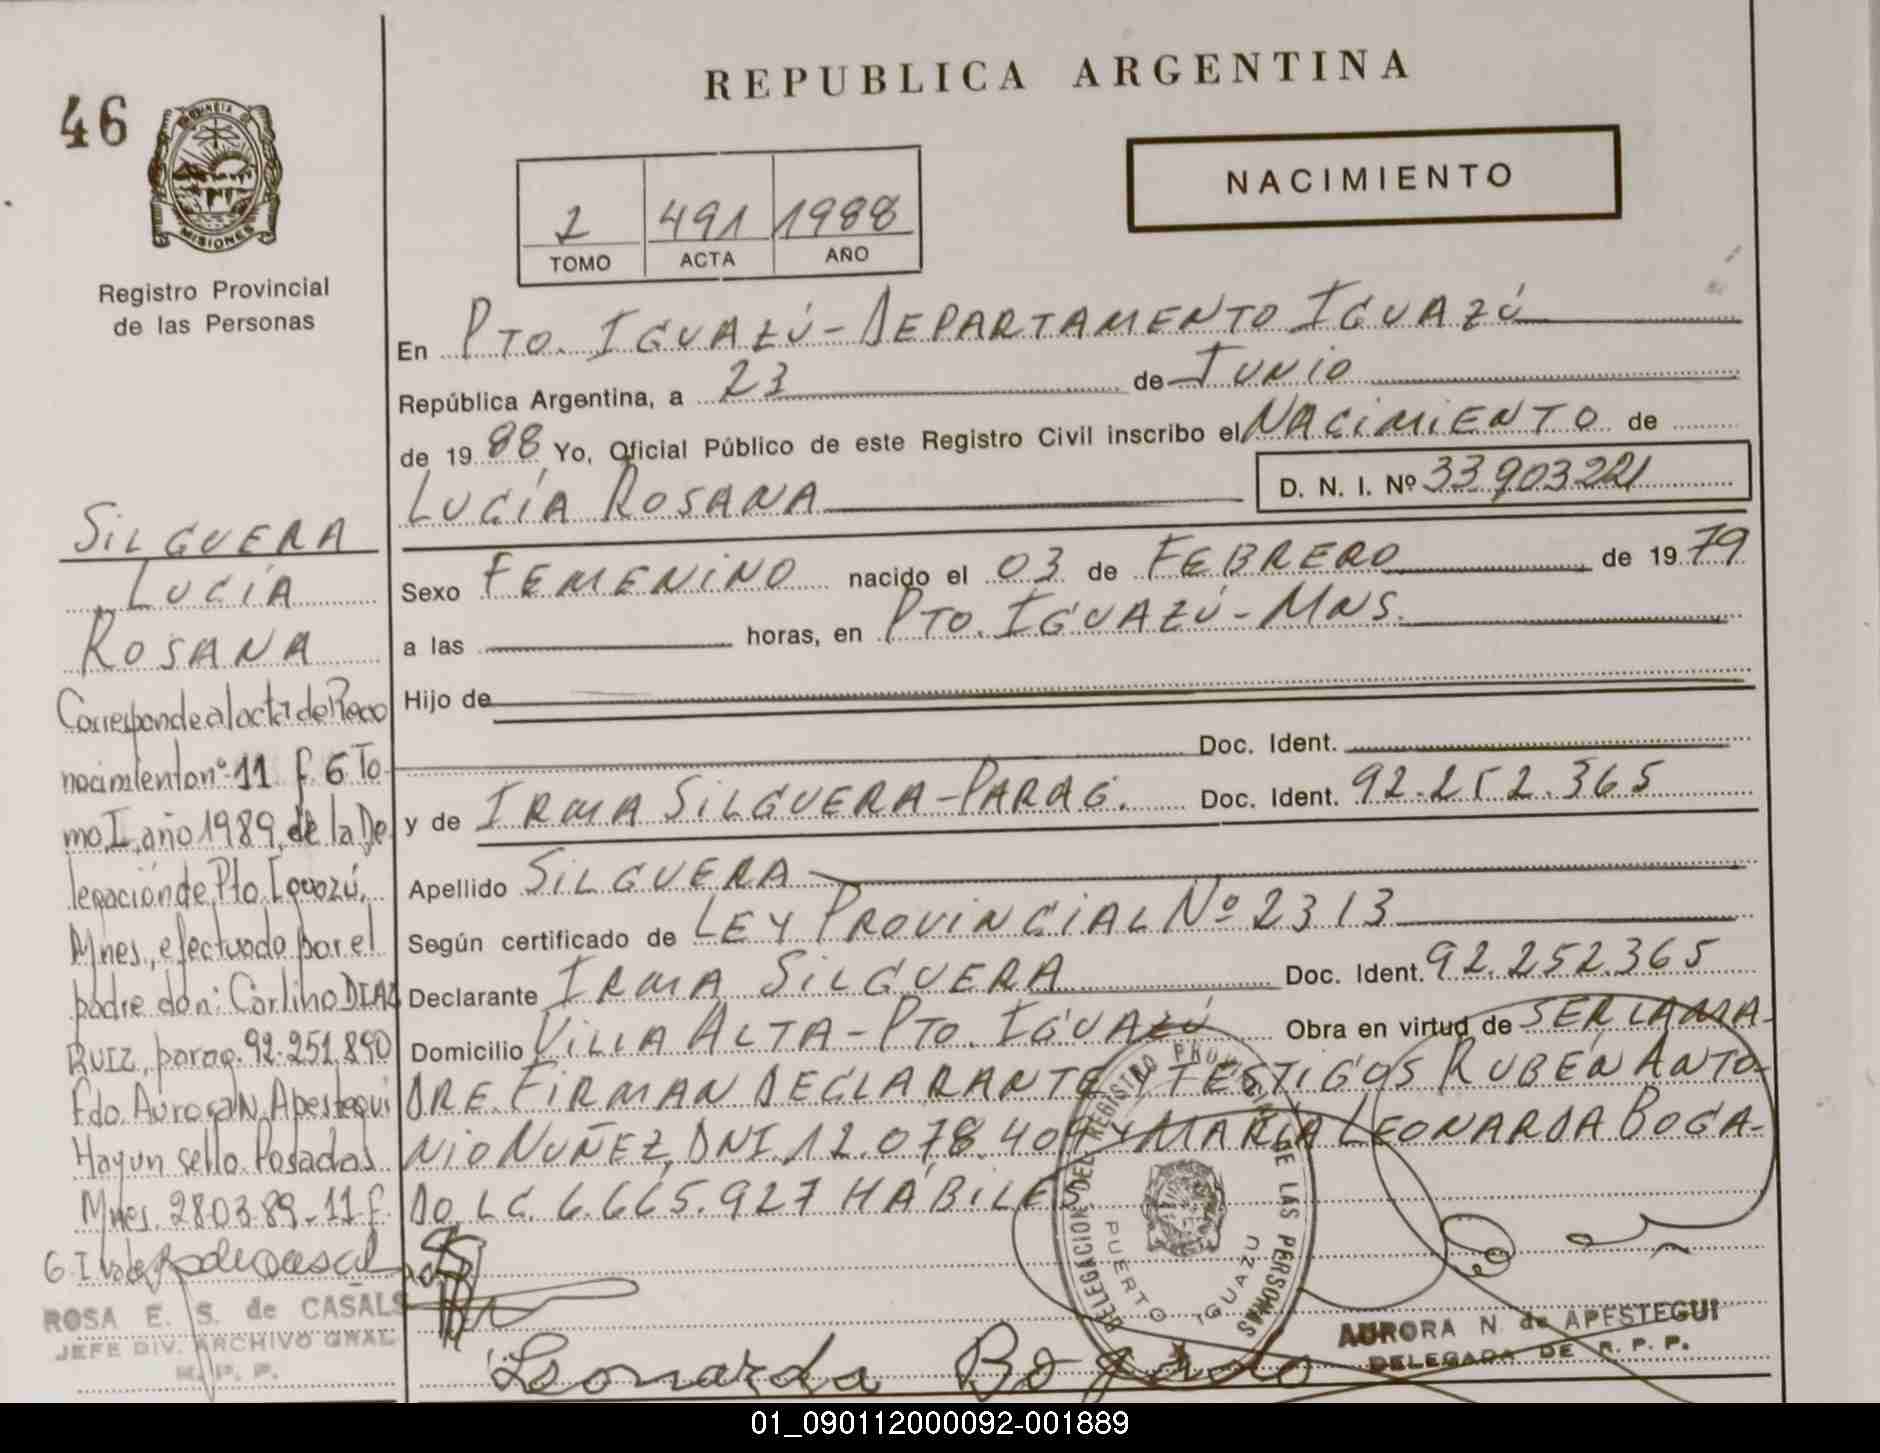 46
PROVINCIA DE
MISIONES
Registro Provincial
de las Personas
SILGUERA
LUCÍA
ROSANA
Corresponde al acta de Reco
nocimiento nº 11 f. 6 To
mo I, año 1989, de la De
legación de Pto. Iguazú,
Mnes., efectuado por el
padre don: Carlino DIAZ
RUIZ, parag. 92.251.890
Fdo. Aurora N. Apestegui
Hay un sello. Posadas
Mnes. 28.03.89.-11 f.
ROSA E. S. de CASALS
JEFE DIV. ARCHIVO GRAL.
R. P. P.
REPUBLICA ARGENTINA
NACIMIENTO
2 491 1988
TOMO ACTA AÑO
En PTO. IGUAZÚ-DEPARTAMENTO IGUAZÚ
República Argentina, a 23 de JUNIO
de 1988 Yo, Oficial Público de este Registro Civil inscribo el NACIMIENTO de
LUCÍA ROSANA D. N. I. Nº 33903221
Sexo FEMENINO nacido el 03 de FEBRERO de 1979
a las horas, en PTO. IGUAZÚ-MNS.
Hijo de
Doc. Ident.
y de IRMA SILGUERA-PARAG. Doc. Ident. 92.252.365
Apellido SILGUERA
Según certificado de LEY PROVINCIAL Nº 2313
Declarante IRMA SILGUERA Doc. Ident. 92.252.365
Domicilio VILLA ALTA-PTO. IGUAZÚ Obra en virtud de SER LA MA-
DRE. FIRMAN DECLARANTE Y TESTIGOS RUBÉN ANTO-
NIO NUÑEZ, DNI. 12.078.409 y MARÍA LEONARDA BOGA-
DO LC. 6.665.927 HÁBILES
DELEGACION DEL REGISTRO PROVINCIAL DE LAS PERSONAS
PUERTO IGUAZU
Leonarda Bogado
AURORA N. de APESTEGUI
DELEGADA DE R. P. P.
01_090112000092-001889